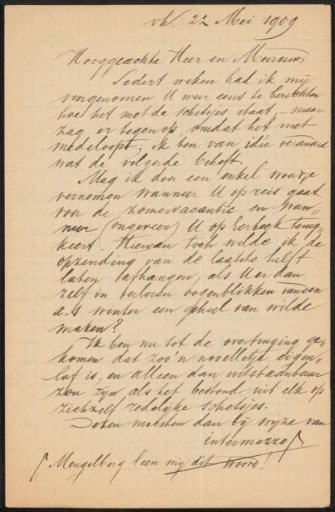 vh. 22 Mei 1909
Hooggeachte Heer en Mevrouw,
Sedert weken had ik mij
voorgenomen U weer eens te berichten
hoe het met de schetsjes staat, maar
zag er tegen op, omdat het niet
medeloopt; ik ben van idée veranderd
wat de volgende betreft.
Mag ik door een enkel woordje
vernemen wanneer U op reis gaat
voor de zomervacantie en wan-
neer (ongeveer) U op Eerbeek terug-
keert. Hiervan toch wilde ik de
opzending van de laatste helft
laten afhangen, als U er dan
zelf in verloren oogenblikken van een
a.s. winter een geheel van wilde
maken?
Ik ben nu tot de overtuiging ge-
komen dat zoo'n novelletje eigen-
is, en alleen dan uitstaanbaar
zou zijn, als het bestond uit elk op
zichzelf redelijke schetsjes.
Dezen moesten dan bij wijze van
intermezzo
Mengelberg leen mij dit woord!